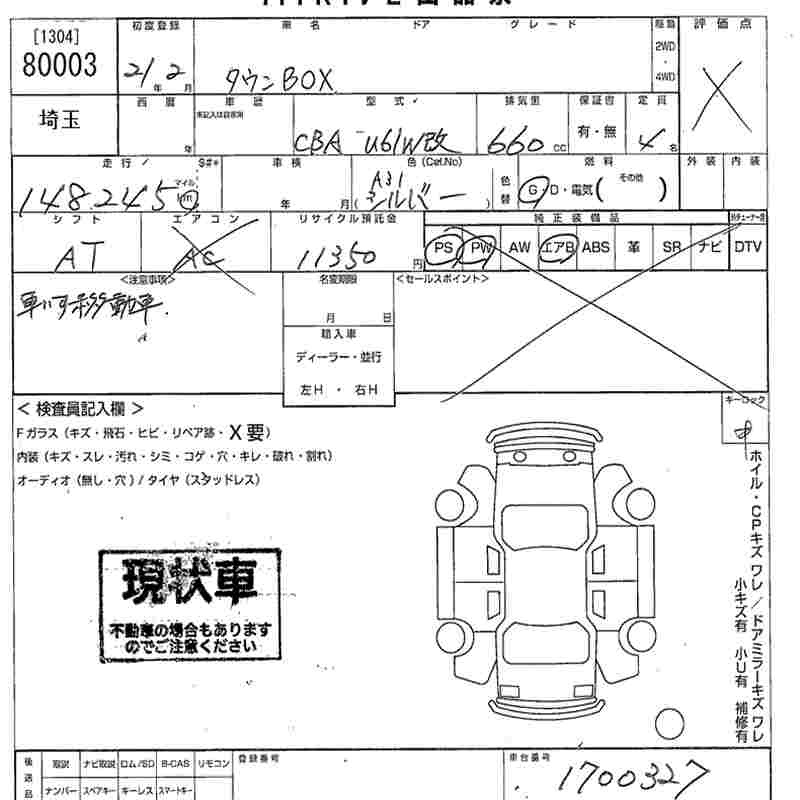 [1304]
80003
初度登録
車名
ドア
グレード
駆動
評価点
21年 2月
タウンBOX
2WD
・
4WD
埼玉
西暦
車歴
型式
排気量
保証書
定員
未記入は自家用
年
CBA U61W改
660 cc
有・無
4名
走行
車検
色(Col.No)
色替
燃料
外装
内装
マイル
148245 km
年 月
A31
(シルバー)
G・D・電気(その他)
シフト
エアコン
リサイクル預託金
純正装備品
AT
AC
11350円
PS PW AW エアB ABS 革 SR ナビ DTV
<注意事項>
名変期限
<セールスポイント>
車いす移動車
月 日
輸入車
ディーラー・並行
左H ・ 右H
<検査員記入欄>
キーロック
Fガラス(キズ・飛石・ヒビ・リペア跡・X要)
内装(キズ・スレ・汚れ・シミ・コゲ・穴・キレ・破れ・割れ)
オーディオ(無し・穴)/タイヤ(スタッドレス)
ホイル・CPキズ ワレ/ドアミラーキズ ワレ
小キズ有 小U有 補修有
現状車
不動車の場合もあります
のでご注意ください
後送品
取説 ナビ取説 ロム/SD B-CAS リモコン
ナンバー スペアキー キーレス スマートキー
登録番号
車台番号
1700327